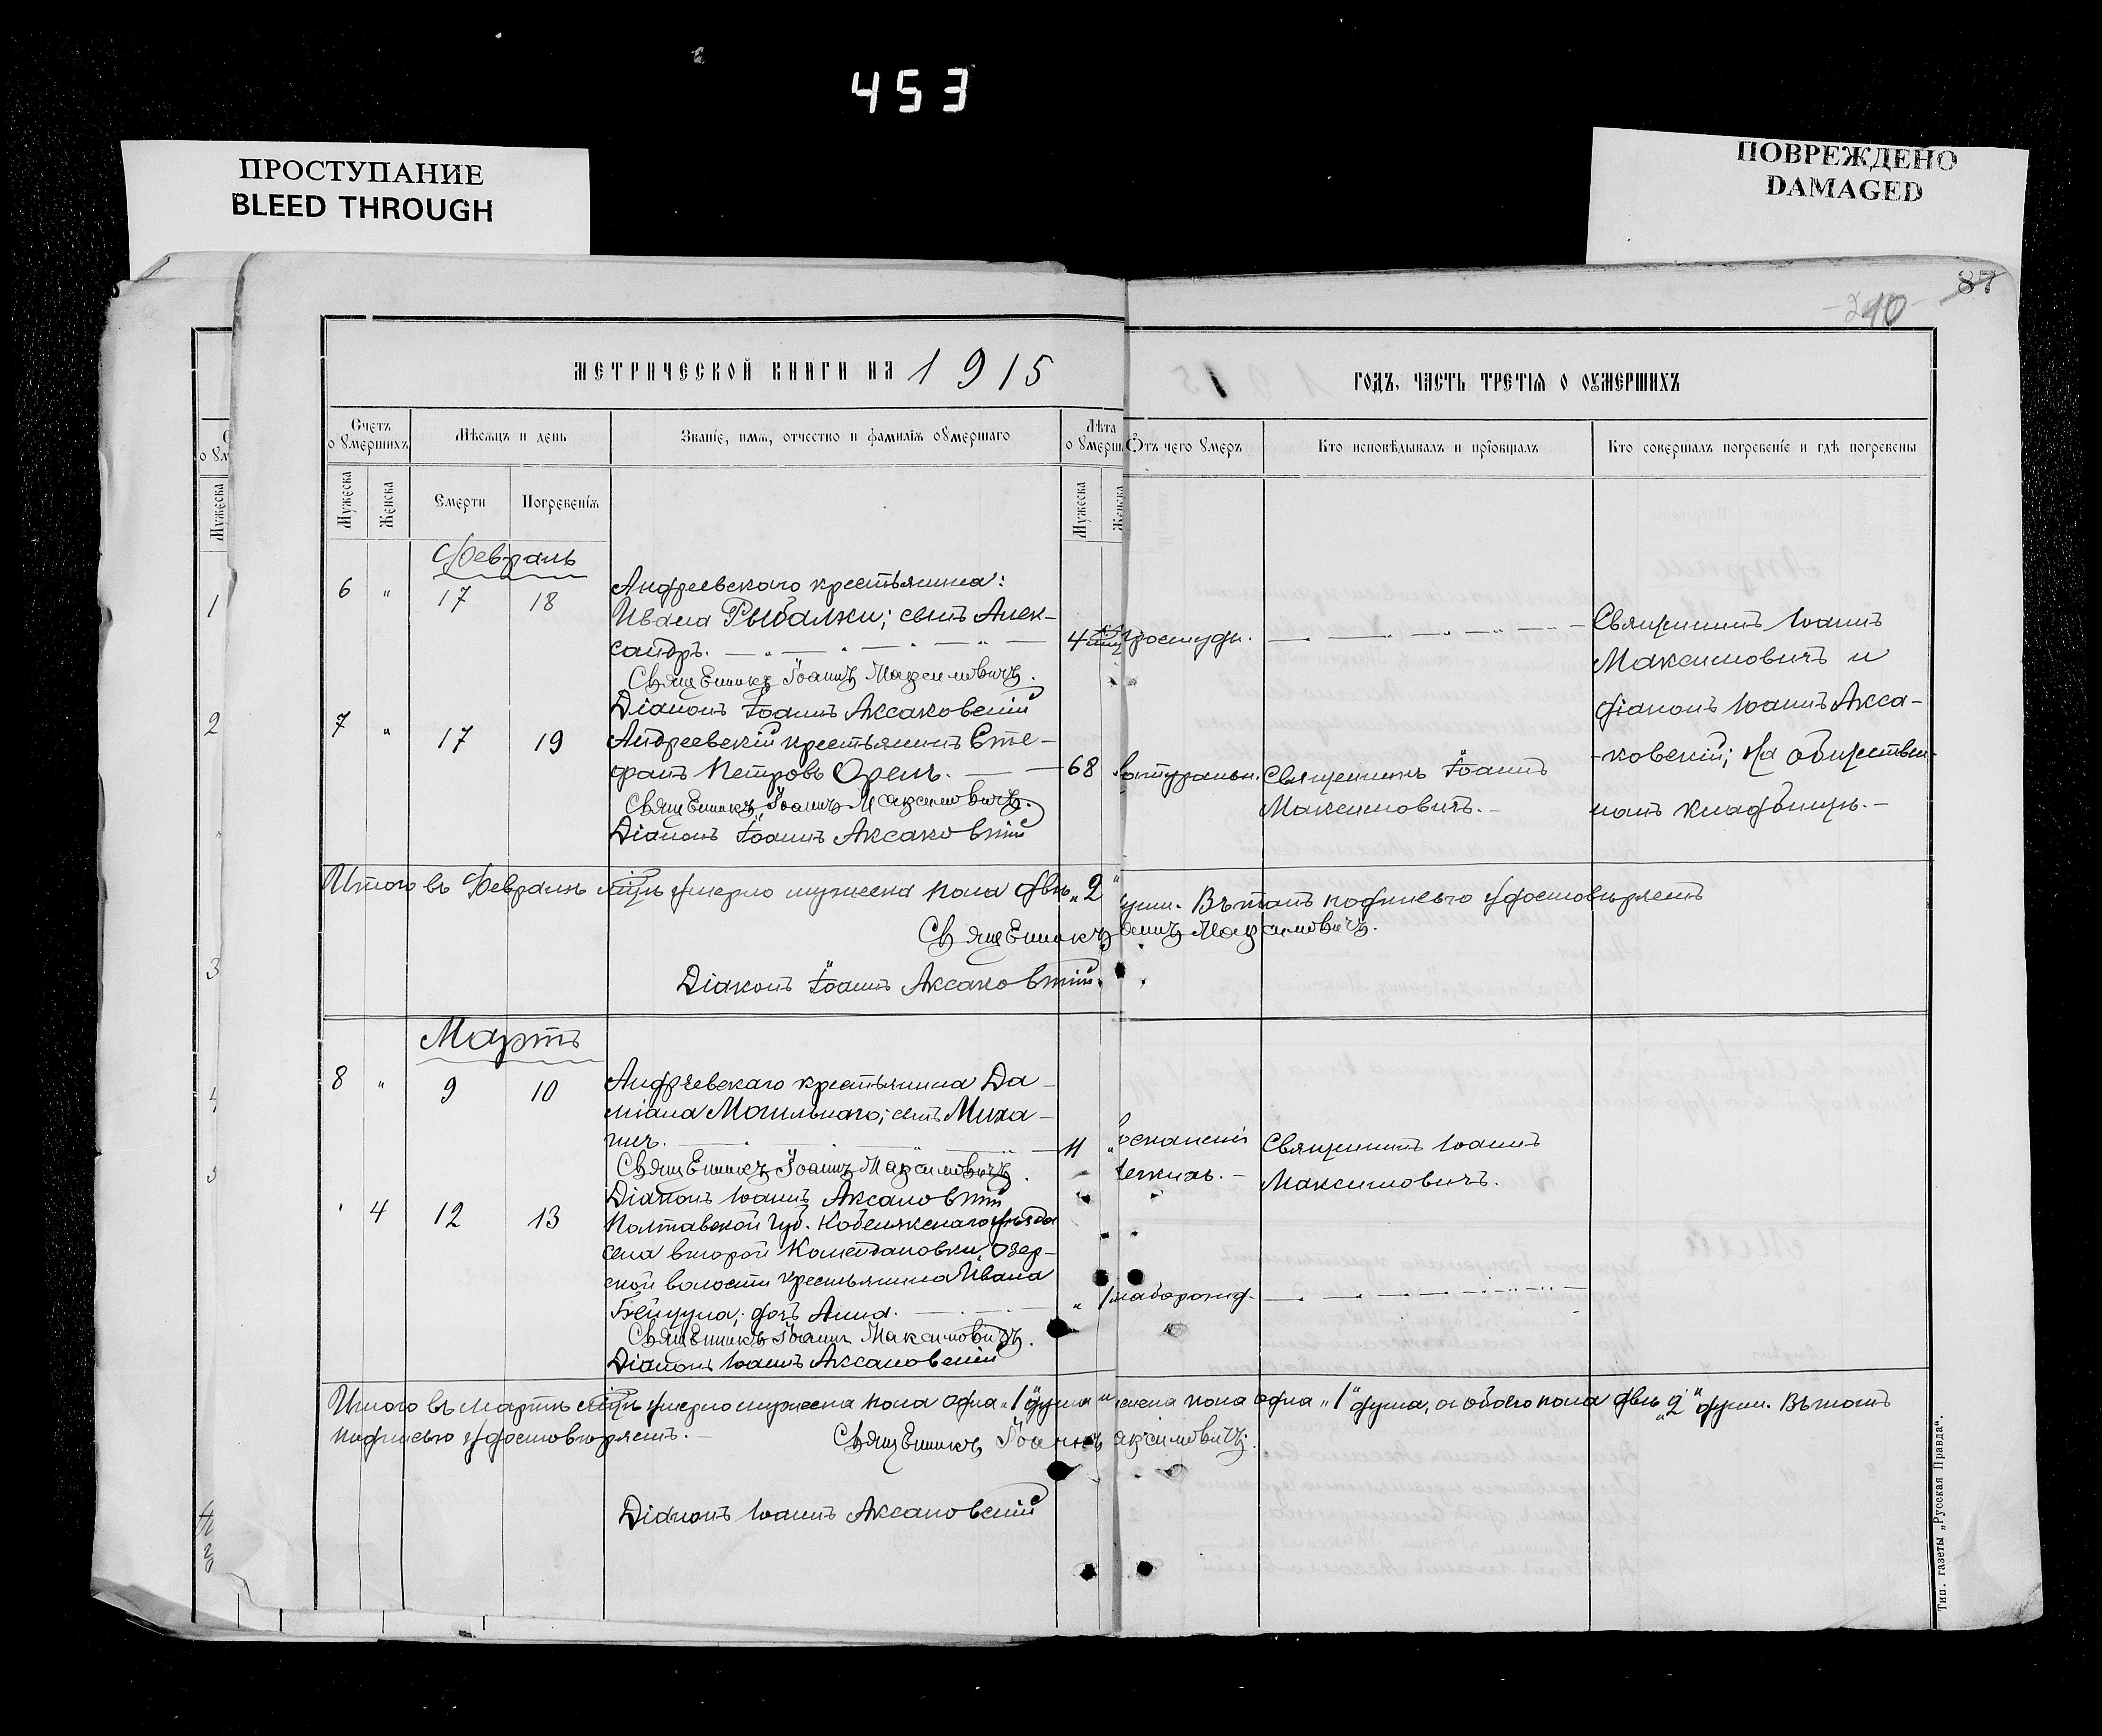 453
ПРОСТУПАНИЕ
BLEED THROUGH
ПОВРЕЖДЕНО
DAMAGED
87
МЕТРИЧЕСКОЙ КНИГИ НА 1915
ГОДЪ, ЧАСТЬ ТРЕТІЯ О ОУМЕРШИХЪ
Счетъ о умершихъ
Мѣсяцъ и день
Званіе, имя, отчество и фамилія оумершаго
Лѣта о умерш
Отъ чего умеръ
Кто исповѣдывалъ и пріобщалъ
Кто совершалъ погребеніе и гдѣ погребены
Мужеска
Женска
Смерти
Погребенія
Мужеска
Женска
Февраль
6 " 17 18
Андреевскаго крестьянина:
Ивана Рыбалки; сынъ Алек-
сандръ.
4
простуды.
Священникъ Іоаннъ Максимовичъ.
Діаконъ Іоаннъ Аксаковскій
Священникъ Іоаннъ
Максимовичъ и
діаконъ Іоаннъ Акса-
-ковскій; На обществен-
номъ кладбищѣ.-
7 " 17 19
Андреевскій крестьянинъ Сте-
фанъ Петровъ Орелъ.
68
натуральн.
Священникъ Іоаннъ
Максимовичъ.-
Священникъ Іоаннъ Максимовичъ.
Діаконъ Іоаннъ Аксаковскій
Итого въ Февралѣ мцѣ умерло мужеска пола двѣ „2"
уши. Въ томъ подписью удостовѣряетъ
Священникъ
аннъ Максимовичъ.
Діаконъ Іоаннъ Аксаковскій.
Мартъ
8 " 9 10
Андреевскаго крестьянина Да-
міана Могильнаго; сынъ Миха-
илъ.
11 "
оспаленія
легкихъ.-
Священникъ Іоаннъ
Максимовичъ.
Священникъ Іоаннъ Максимовичъ.
Діаконъ Іоаннъ Аксаковскій
" 4 12 13
Полтавской губ. Кобелякскаго уѣзда
села второй Комендановки, Озер-
ской волости крестьянина Ивана
дочь Анна.
" 1
Священникъ Іоаннъ Максимовичъ.
Діаконъ Іоаннъ Аксаковскій
Итого въ Мартѣ мцѣ умерло мужеска пола одна „1" душа и
женска пола одна „1" душа, а обоего пола двѣ „2" души. Въ томъ
подписью удостовѣряетъ.-
Священникъ Іоаннъ Максимовичъ.
Діаконъ Іоаннъ Аксаковскій
Тип. газеты „Русская Правда".